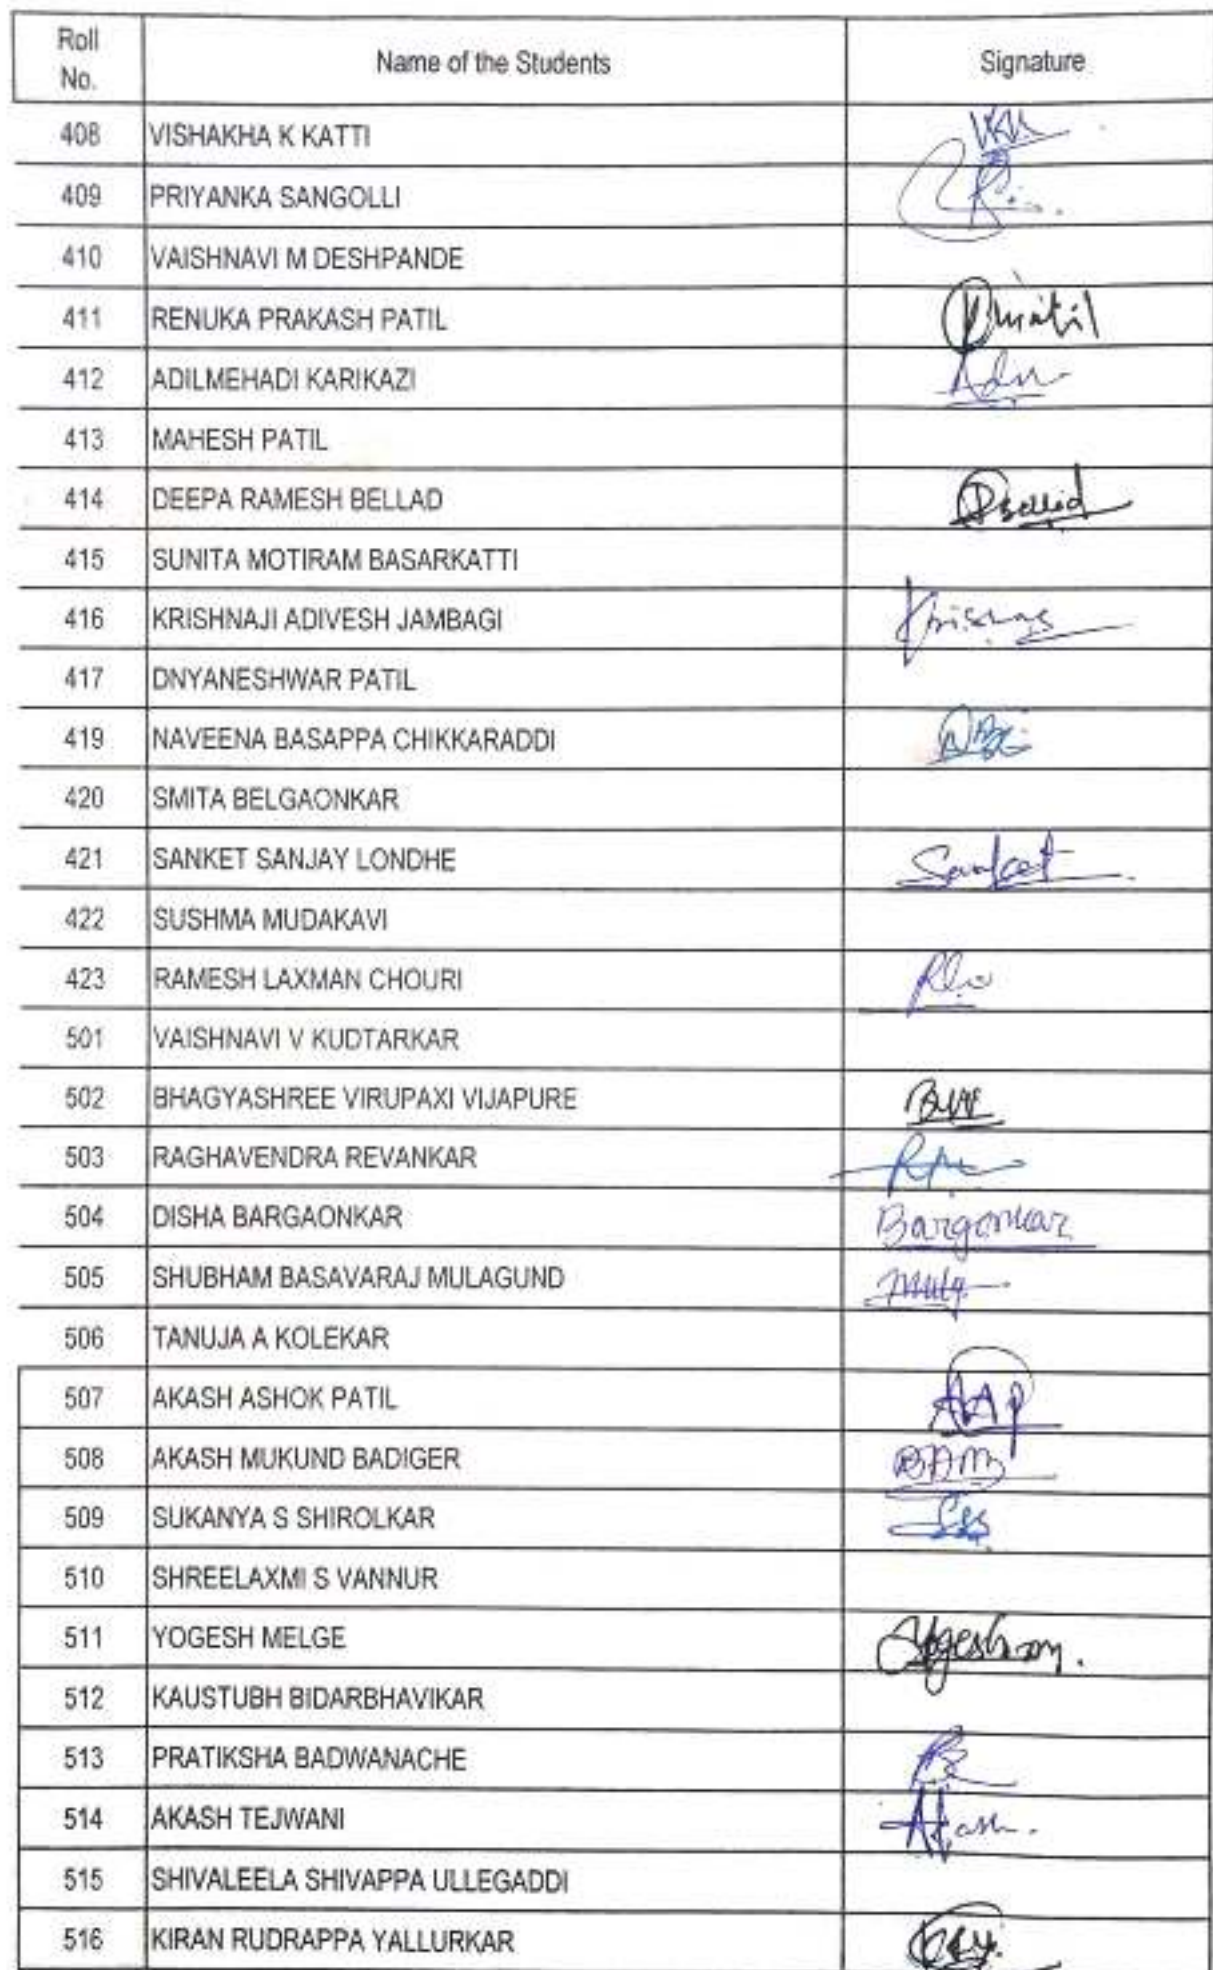 Roll No. Name of the Students Signature
408 VISHAKHA K KATTI
409 PRIYANKA SANGOLLI
410 VAISHNAVI M DESHPANDE
411 RENUKA PRAKASH PATIL
412 ADILMEHADI KARIKAZI
413 MAHESH PATIL
414 DEEPA RAMESH BELLAD
415 SUNITA MOTIRAM BASARKATTI
416 KRISHNAJI ADIVESH JAMBAGI
417 DNYANESHWAR PATIL
419 NAVEENA BASAPPA CHIKKARADDI
420 SMITA BELGAONKAR
421 SANKET SANJAY LONDHE Sanket
422 SUSHMA MUDAKAVI
423 RAMESH LAXMAN CHOURI
501 VAISHNAVI V KUDTARKAR
502 BHAGYASHREE VIRUPAXI VIJAPURE
503 RAGHAVENDRA REVANKAR
504 DISHA BARGAONKAR Bargonkar
505 SHUBHAM BASAVARAJ MULAGUND
506 TANUJA A KOLEKAR
507 AKASH ASHOK PATIL AAP
508 AKASH MUKUND BADIGER BAM
509 SUKANYA S SHIROLKAR
510 SHREELAXMI S VANNUR
511 YOGESH MELGE
512 KAUSTUBH BIDARBHAVIKAR
513 PRATIKSHA BADWANACHE
514 AKASH TEJWANI Akash
515 SHIVALEELA SHIVAPPA ULLEGADDI
516 KIRAN RUDRAPPA YALLURKAR